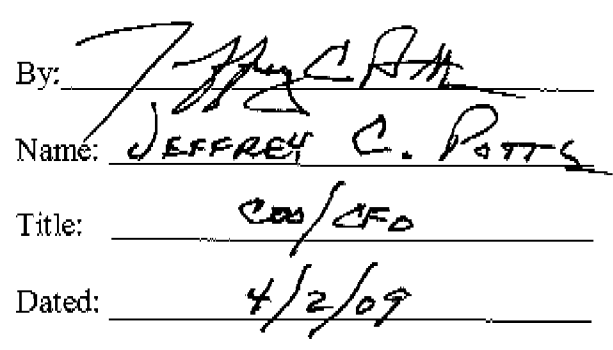 By: Jeffrey C Potts
Name: JEFFREY C. POTTS
Title: COO/CFO
Dated: 4/2/09